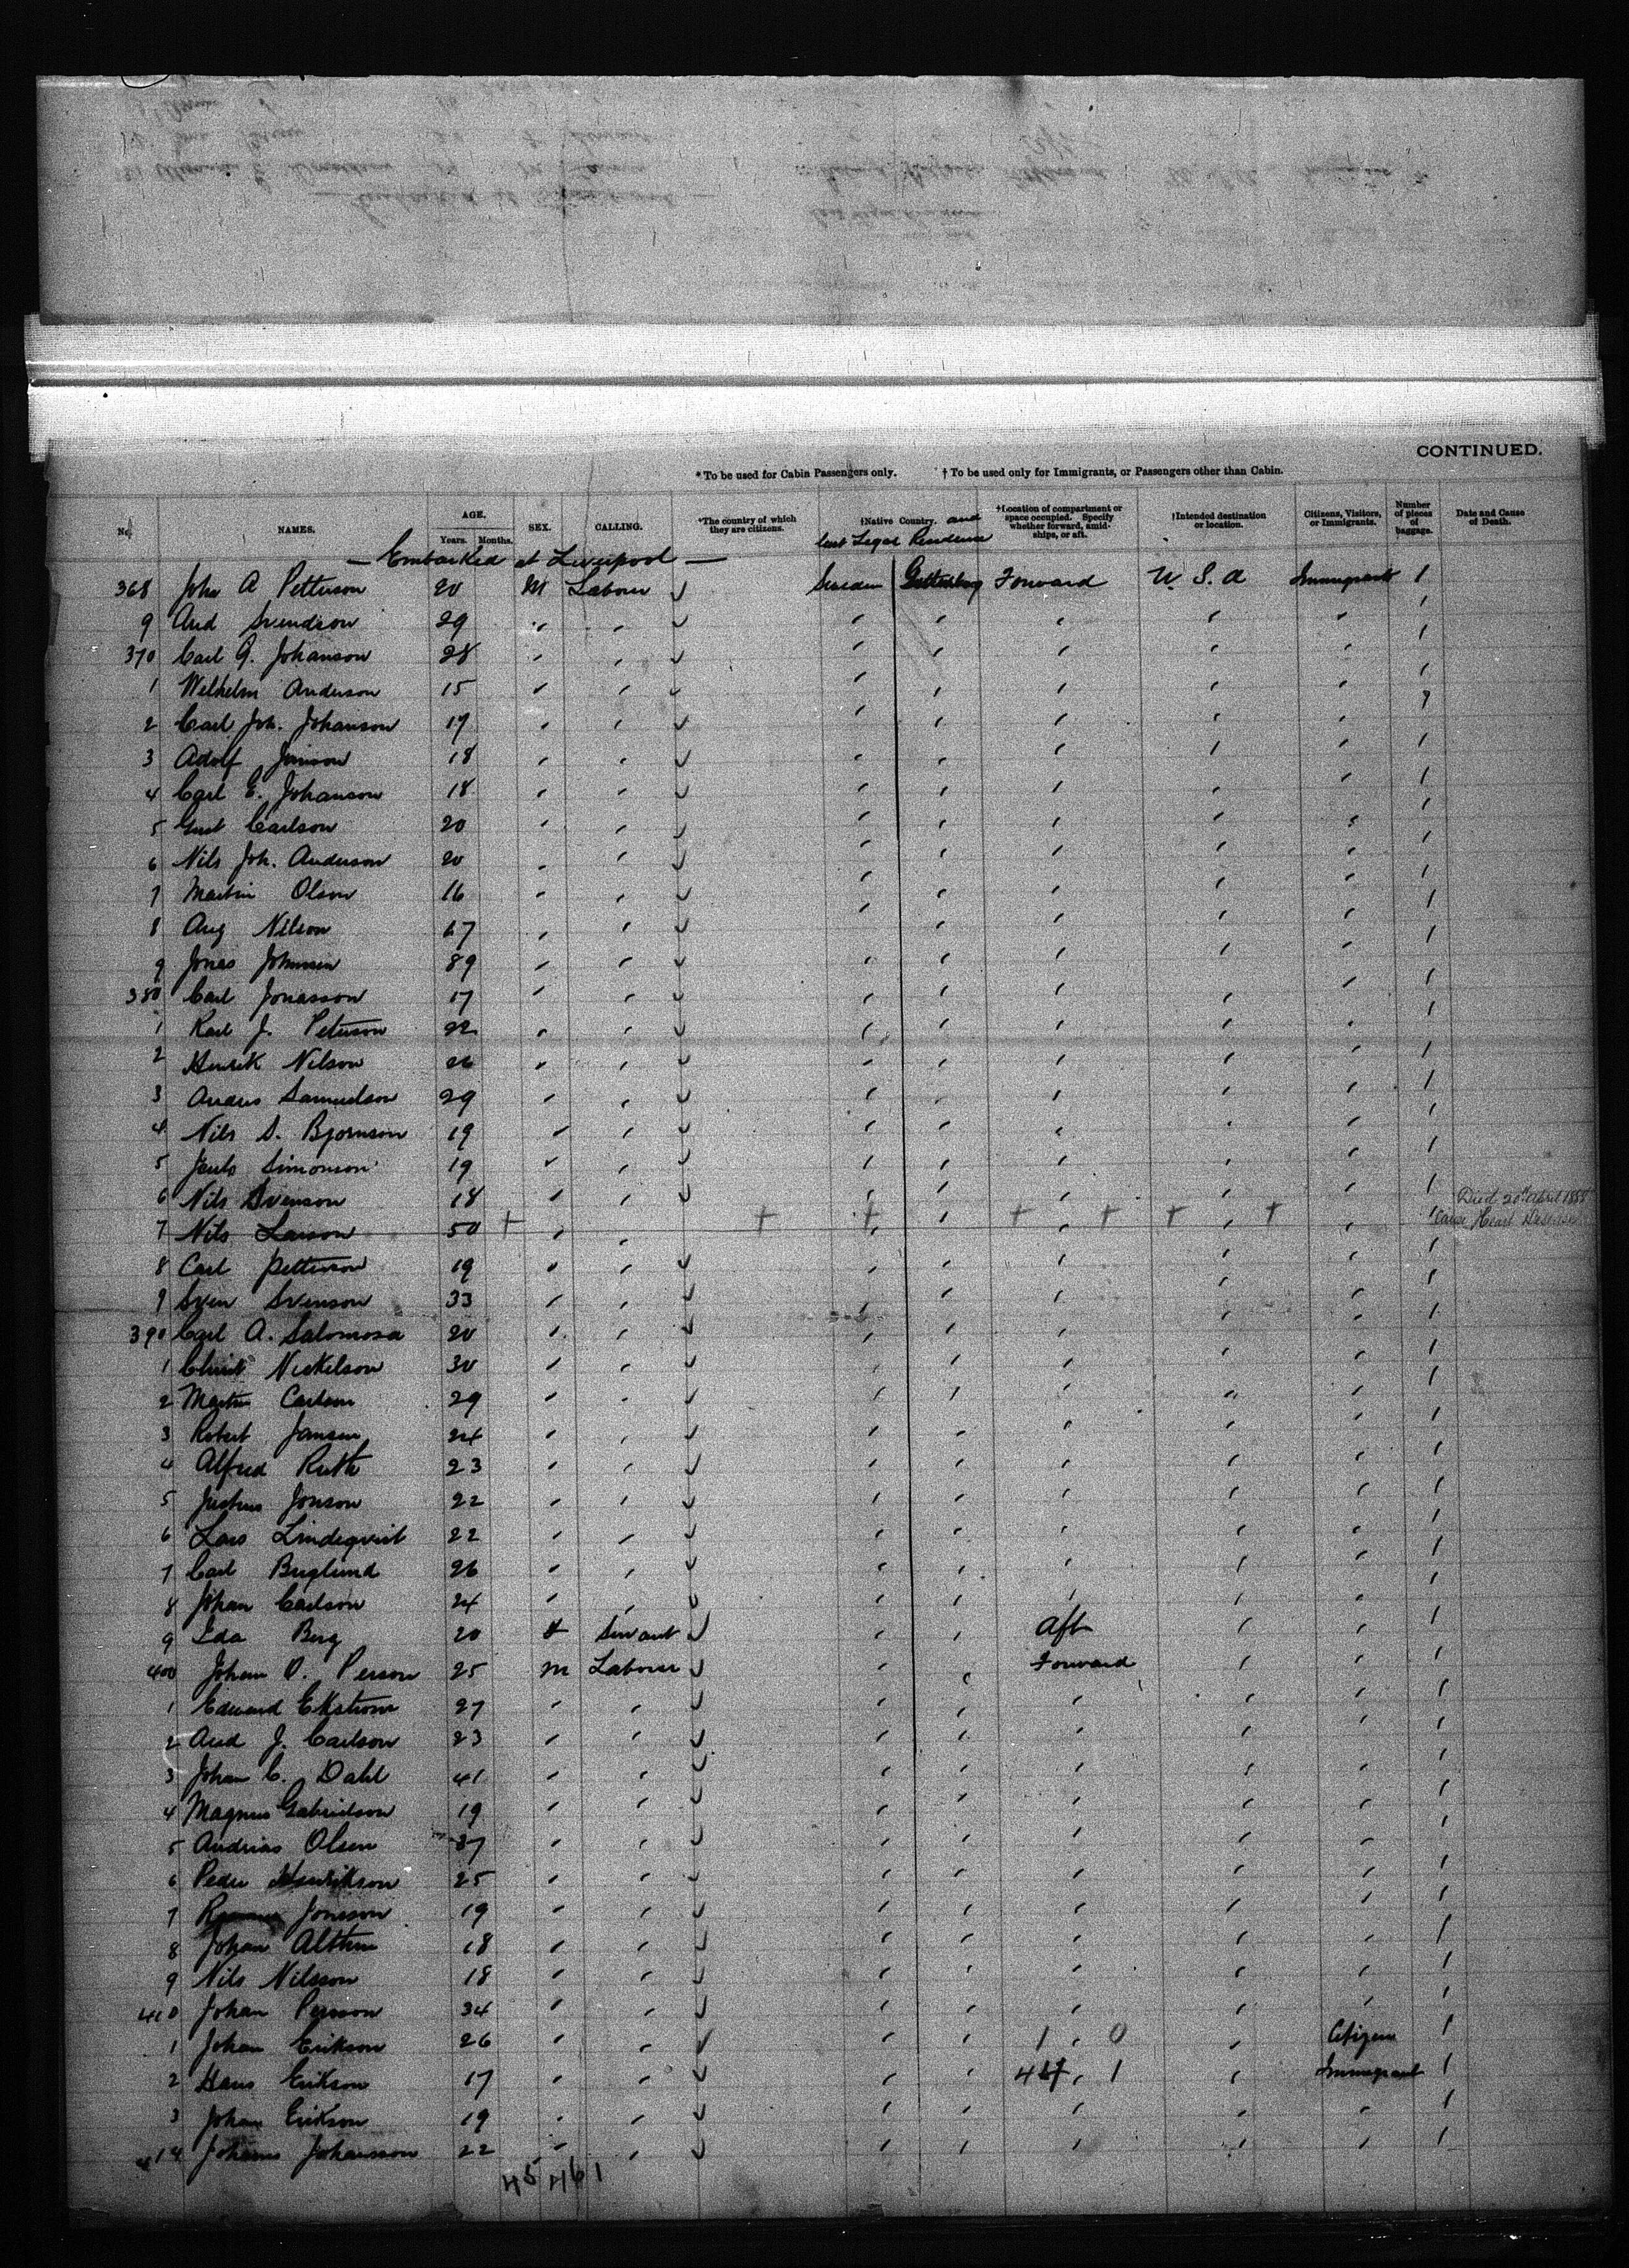 CONTINUED.
* To be used for Cabin Passengers only. † To be used only for Immigrants, or Passengers other than Cabin.
No. NAMES. AGE. Years. Months. SEX. CALLING. *The country of which they are citizens. †Native Country. and last Legal Residence †Location of compartment or space occupied. Specify whether forward, amidships, or aft. †Intended destination or location. Citizens, Visitors, or Immigrants. Number of pieces of baggage. Date and Cause of Death.
— Embarked at Liverpool —
368 John A Petterson 20 M Labour Sweden Gottenburg Forward U. S. A Immigrants 1
9 And Svendson 29 " " " " " " " 1
370 Carl G. Johanson 28 " " " " " " " 1
1 Wilhelm Anderson 15 " " " " " " " 1
2 Carl Joh. Johanson 17 " " " " " " "
3 Adolf 18 " " " " " " " 1
4 Carl E. Johanson 18 " " " " " " " 1
5 Gust Carlson 20 " " " " " " " 1
6 Nils Joh. Anderson 20 " " " " " " " 1
7 Martin Olson 16 " " " " " " " 1
8 Aug Nilson " " " " " " " 1
9 Jonas " " " " " " " 1
380 Carl Jonasson 17 " " " " " " " 1
1 Karl J. Peterson 22 " " " " " " " 1
2 Henrik Nilson 26 " " " " " " " 1
3 Anders Samuelson 29 " " " " " " " 1
4 Nils S. Bjornson 19 " " " " " " " 1
5 Simonson 19 " " " " " " " 1
6 Nils Svenson 18 " " " " " " " 1
7 Nils Larson 50 " " " " " " " 1 Died 20th April 1888 Cause Heart Disease
8 Carl Petterson 19 " " " " " " " 1
9 Sven Svenson 33 " " " " " " " 1
390 Carl A. Salomosa 20 " " " " " " " 1
1 Christ Nickelson 30 " " " " " " " 1
2 Martin Carlson 29 " " " " " " " 1
3 Robert Jansen 24 " " " " " " " 1
4 Alfred Ruth 23 " " " " " " " 1
5 Justus Jonson 22 " " " " " " " 1
6 Lars Lindeqvist 22 " " " " " " " 1
7 Carl Berglund 26 " " " " " " " 1
8 Johan Carlson 24 " " " " " " " 1
9 Ida Berg 20 f Servant " " Aft " " 1
400 Johan O. Person 25 m Labour " " Forward " " 1
1 Edward Ekstrom 27 " " " " " " " 1
2 And J. Carlson 23 " " " " " " " 1
3 Johan C. Dahl 41 " " " " " " " 1
4 Magnus Gabrielson 19 " " " " " " " 1
5 Andrias Olsen 37 " " " " " " " 1
6 Peder Henrikson 25 " " " " " " " 1
7 Jonsson 19 " " " " " " " 1
8 Johan Althin 18 " " " " " " " 1
9 Nils Nilsson 18 " " " " " " " 1
410 Johan Persson 34 " " " " " " " 1
1 Johan Erikson 26 " " " " 1 " 0 " Citizen 1
2 Hans Erikson 17 " " " " " 1 " Immigrant 1
3 Johan Erikson 19 " " " " " " " 1
414 Johans Johansson 22 " " " " " " " 1
45 46 1